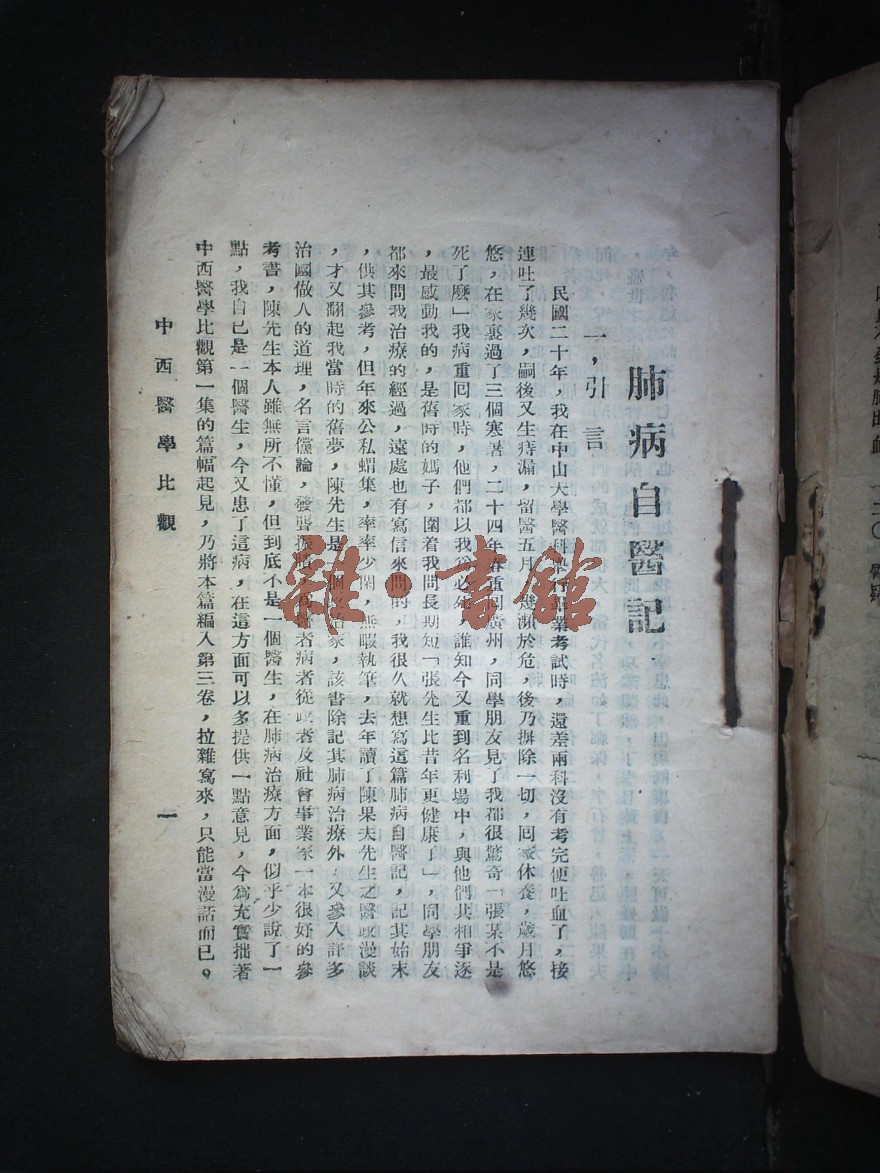 肺病自醫記
一，引言
民國二十年，我在中山大學醫科舉行畢業考試時，還差兩科沒有考完便吐血了，接
連吐了幾次，嗣後又生痔漏，留醫五月，幾瀕於危，後乃摒除一切，回家休養，歲月悠
悠，在家裏過了三個寒暑，二十四年春重回廣州，同學朋友見了我都很驚奇「張某不是
死了麽」我病重回家時，他們都以我為必死，誰知今又重到名利場中，與他們共相爭逐
，最感動我的，是舊時的媽子，圍着我問長期短「張先生比昔年更健康了」，同學朋友
都來問我治療的經過，遠處也有寫信來問的，我很久就想寫這篇肺病自醫記，記其始末
，供其參考，但年來公私蝟集，率率少閑，無暇執筆，去年讀了陳果夫先生之醫政漫談
，才又翻起我當時的舊夢，陳先生是一個政治家，該書除記其肺病治療外，又參入許多
治國做人的道理，名言儻論，發聾振聵，為醫者病者從政者及社會事業家一本很好的參
考書，陳先生本人雖無所不懂，但到底不是一個醫生，在肺病治療方面，似乎少說了一
點，我自己是一個醫生，今又患了這病，在這方面可以多提供一點意見，今為充實拙著
中西醫學比觀第一集的篇幅起見，乃將本篇編入第三卷，拉雜寫來，只能當漫話而已。
中西醫學比觀
一
雜·書館